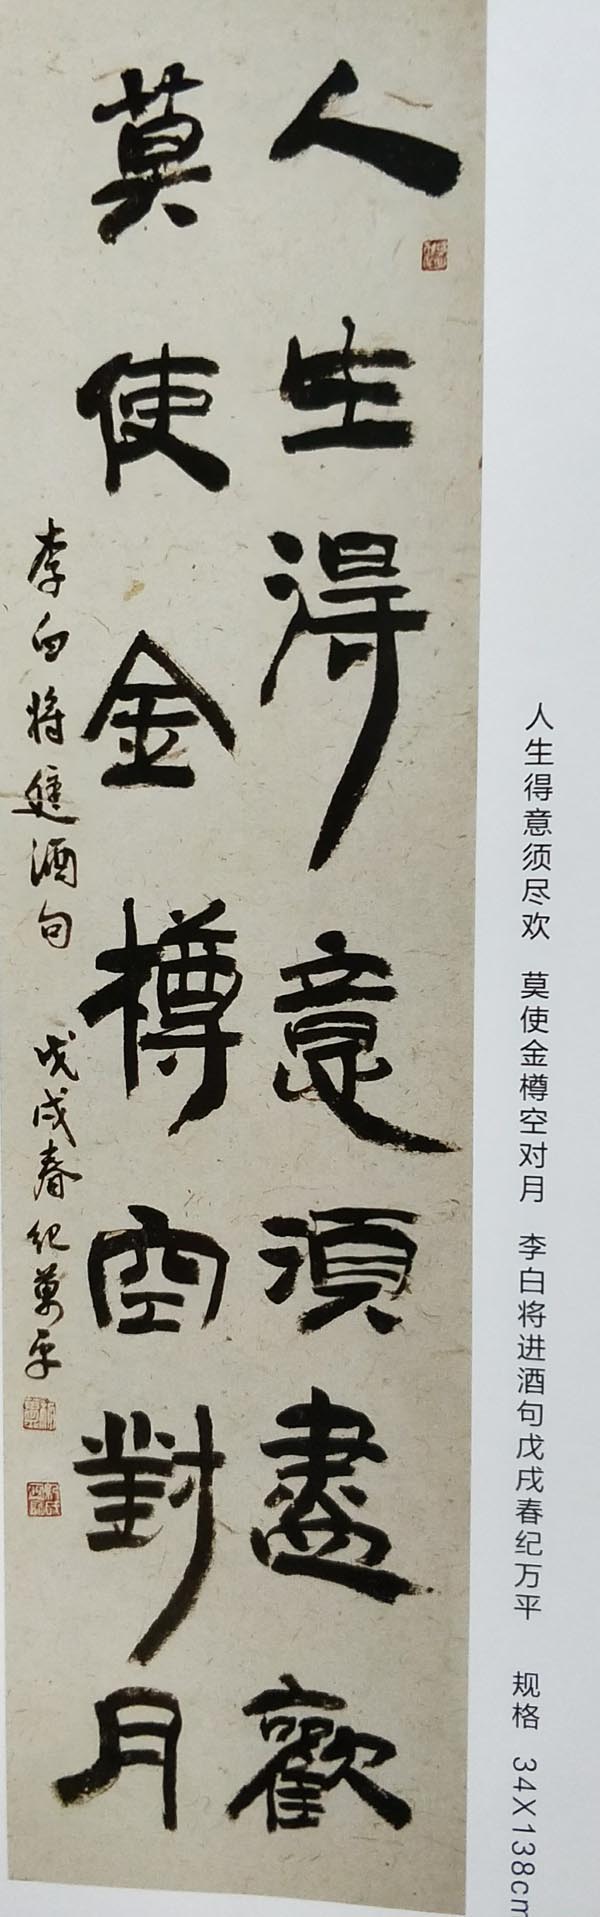 人生得意須盡歡
莫使金樽空對月
李白將進酒句 戊戌春紀萬平
人生得意须尽欢 莫使金樽空对月 李白将进酒句戊戌春纪万平 规格 34X138cm